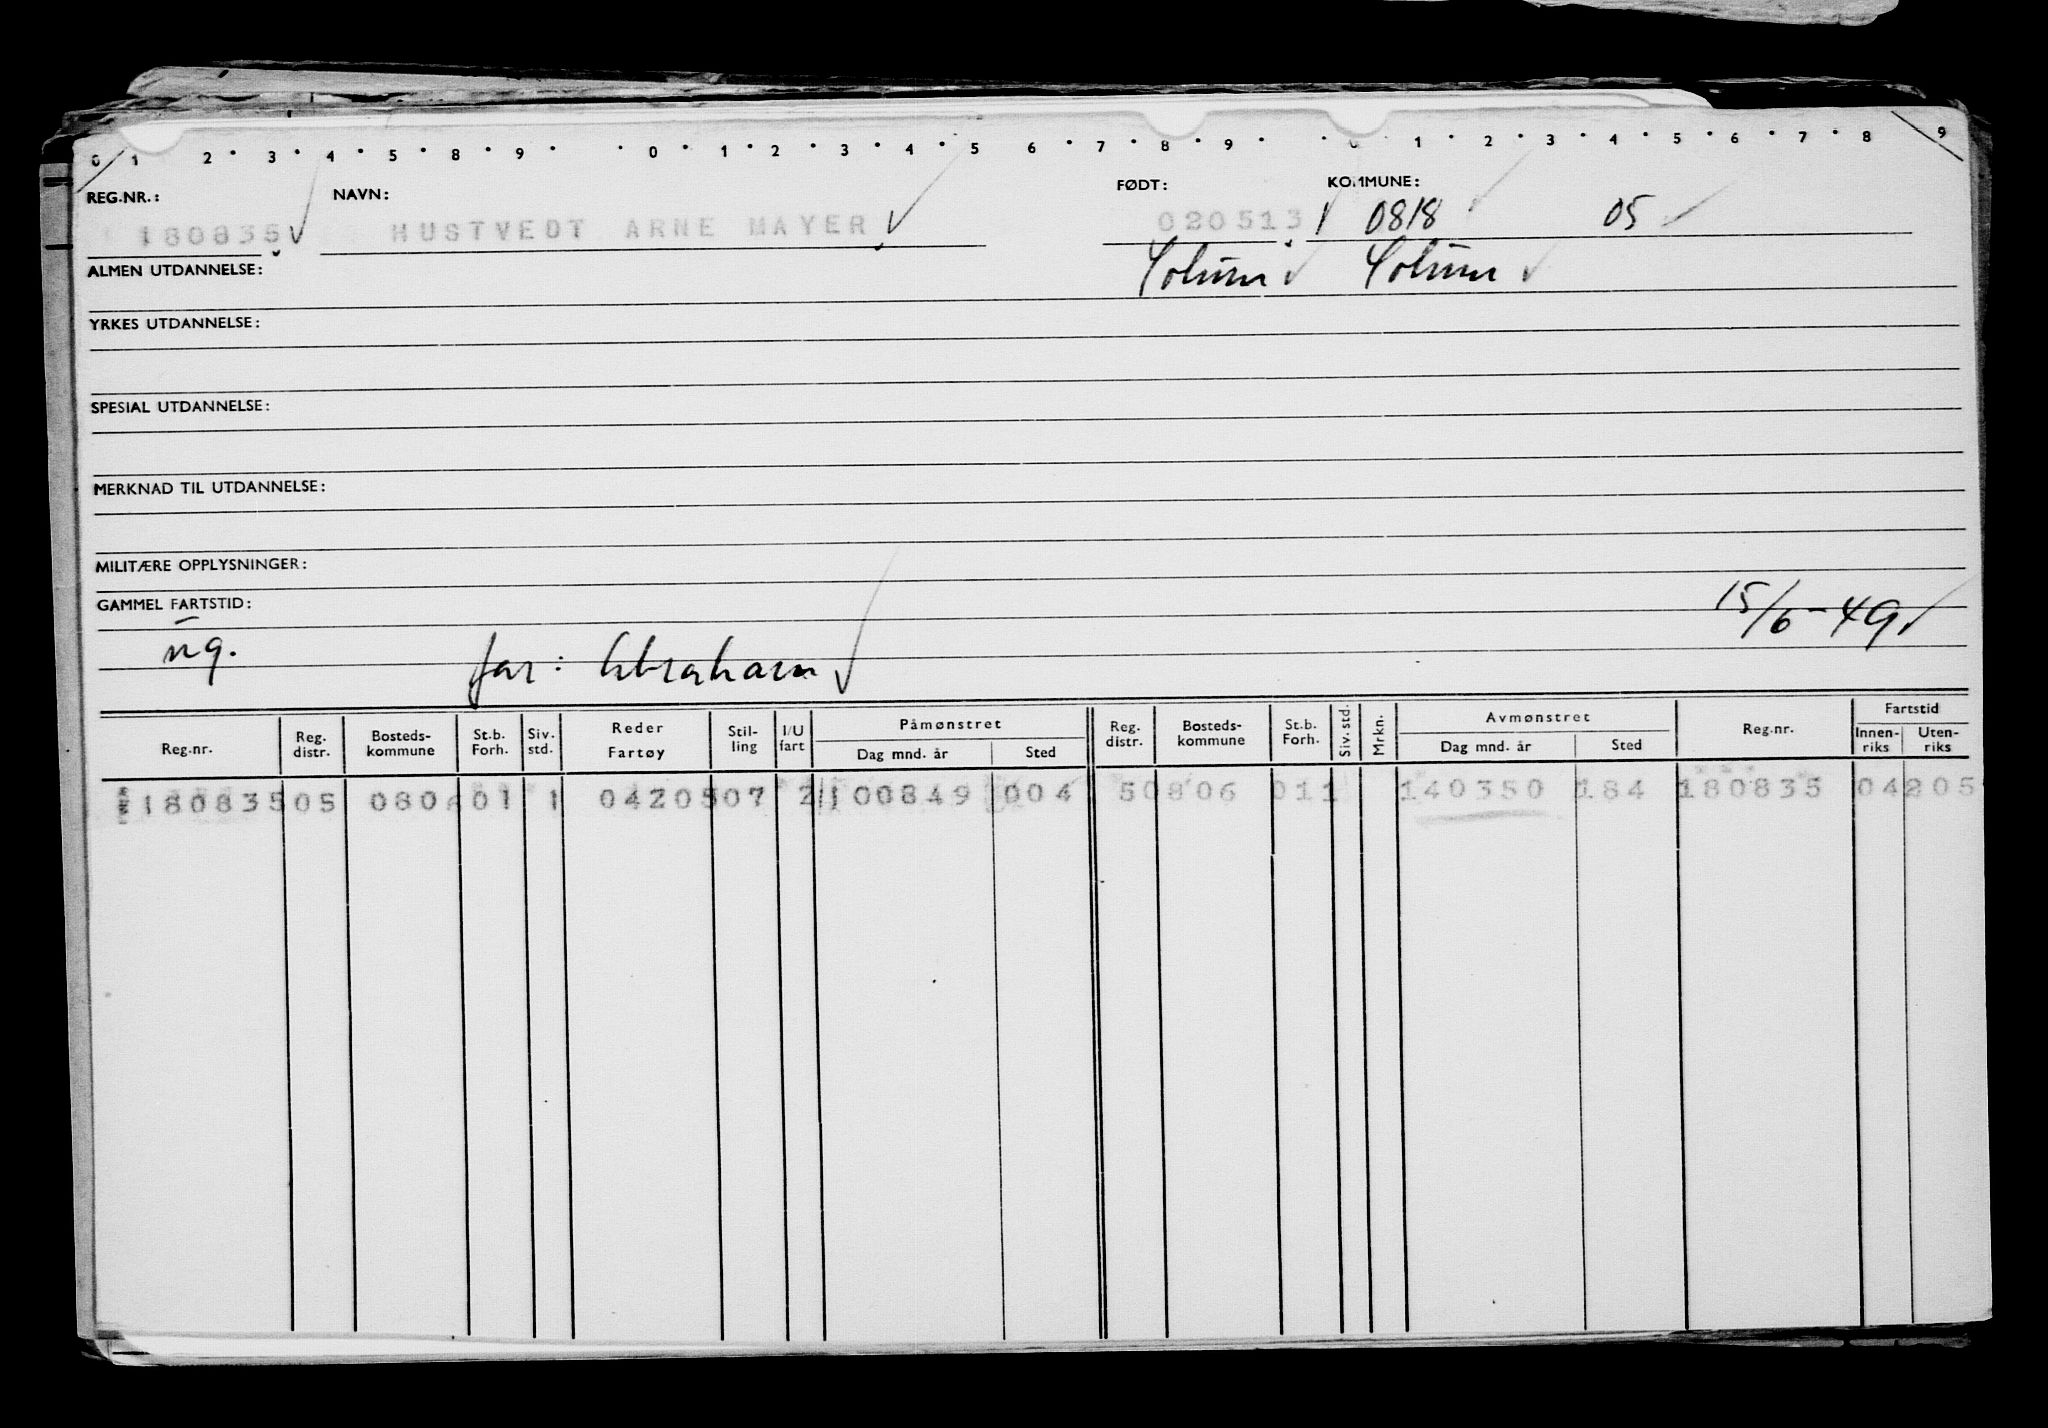 0 1 2 • 3 • 4 • 5 • 8 • 9 • • 0 • 1 • 2 • 3 • 4 • 5 6 • 7 • 8 • 9 • • 0 1 • 2 • 3 • 4 • 5 • 6 • 7 • 8 9
REG.NR.: NAVN: FØDT: KOMMUNE:
180835 HUSTVEDT ARNE MAYER 020513 0818 05
ALMEN UTDANNELSE: Solum Solum
YRKES UTDANNELSE:
SPESIAL UTDANNELSE:
MERKNAD TIL UTDANNELSE:
MILITÆRE OPPLYSNINGER:
GAMMEL FARTSTID: 15/6-49
ug. far: Abraham
Reg.nr. Reg. distr. Bosteds-kommune St.b. Forh. Siv. std. Reder Fartøy Stil-ling I/U fart Påmønstret Dag mnd. år Sted Reg. distr. Bosteds-kommune St.b. Forh. Siv. std. Mrkn. Avmønstret Dag mnd. år Sted Reg.nr. Fartstid Innen-riks Uten-riks
180835 05 080 01 1 04205 07 2 100849 004 5 0806 01 1 140350 184 180835 04205